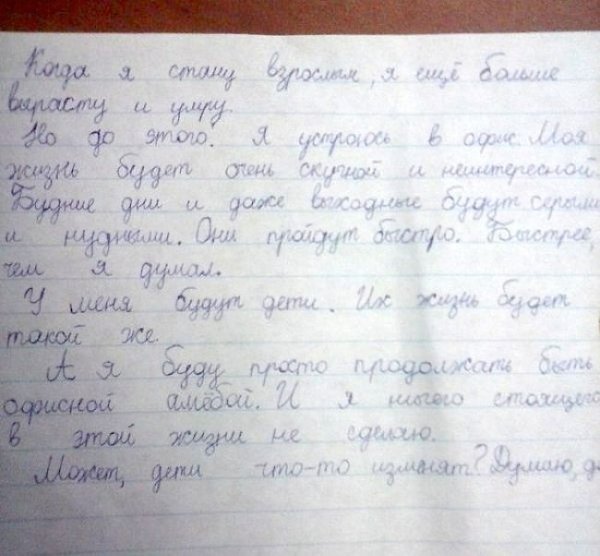 Когда я стану взрослым, я ещё больше
вырасту и умру.
Но до этого. Я устроюсь в офис. Моя
жизнь будет очень скучной и неинтересной.
Будние дни и даже выходные будут серыми
и нудными. Они пройдут быстро. Быстрее,
чем я думал.
У меня будут дети. Их жизнь будет
такой же.
А я буду просто продолжать быть
офисной амёбой. И я ничего стоящего
в этой жизни не сделаю.
Может, дети что-то изменят? Думаю,